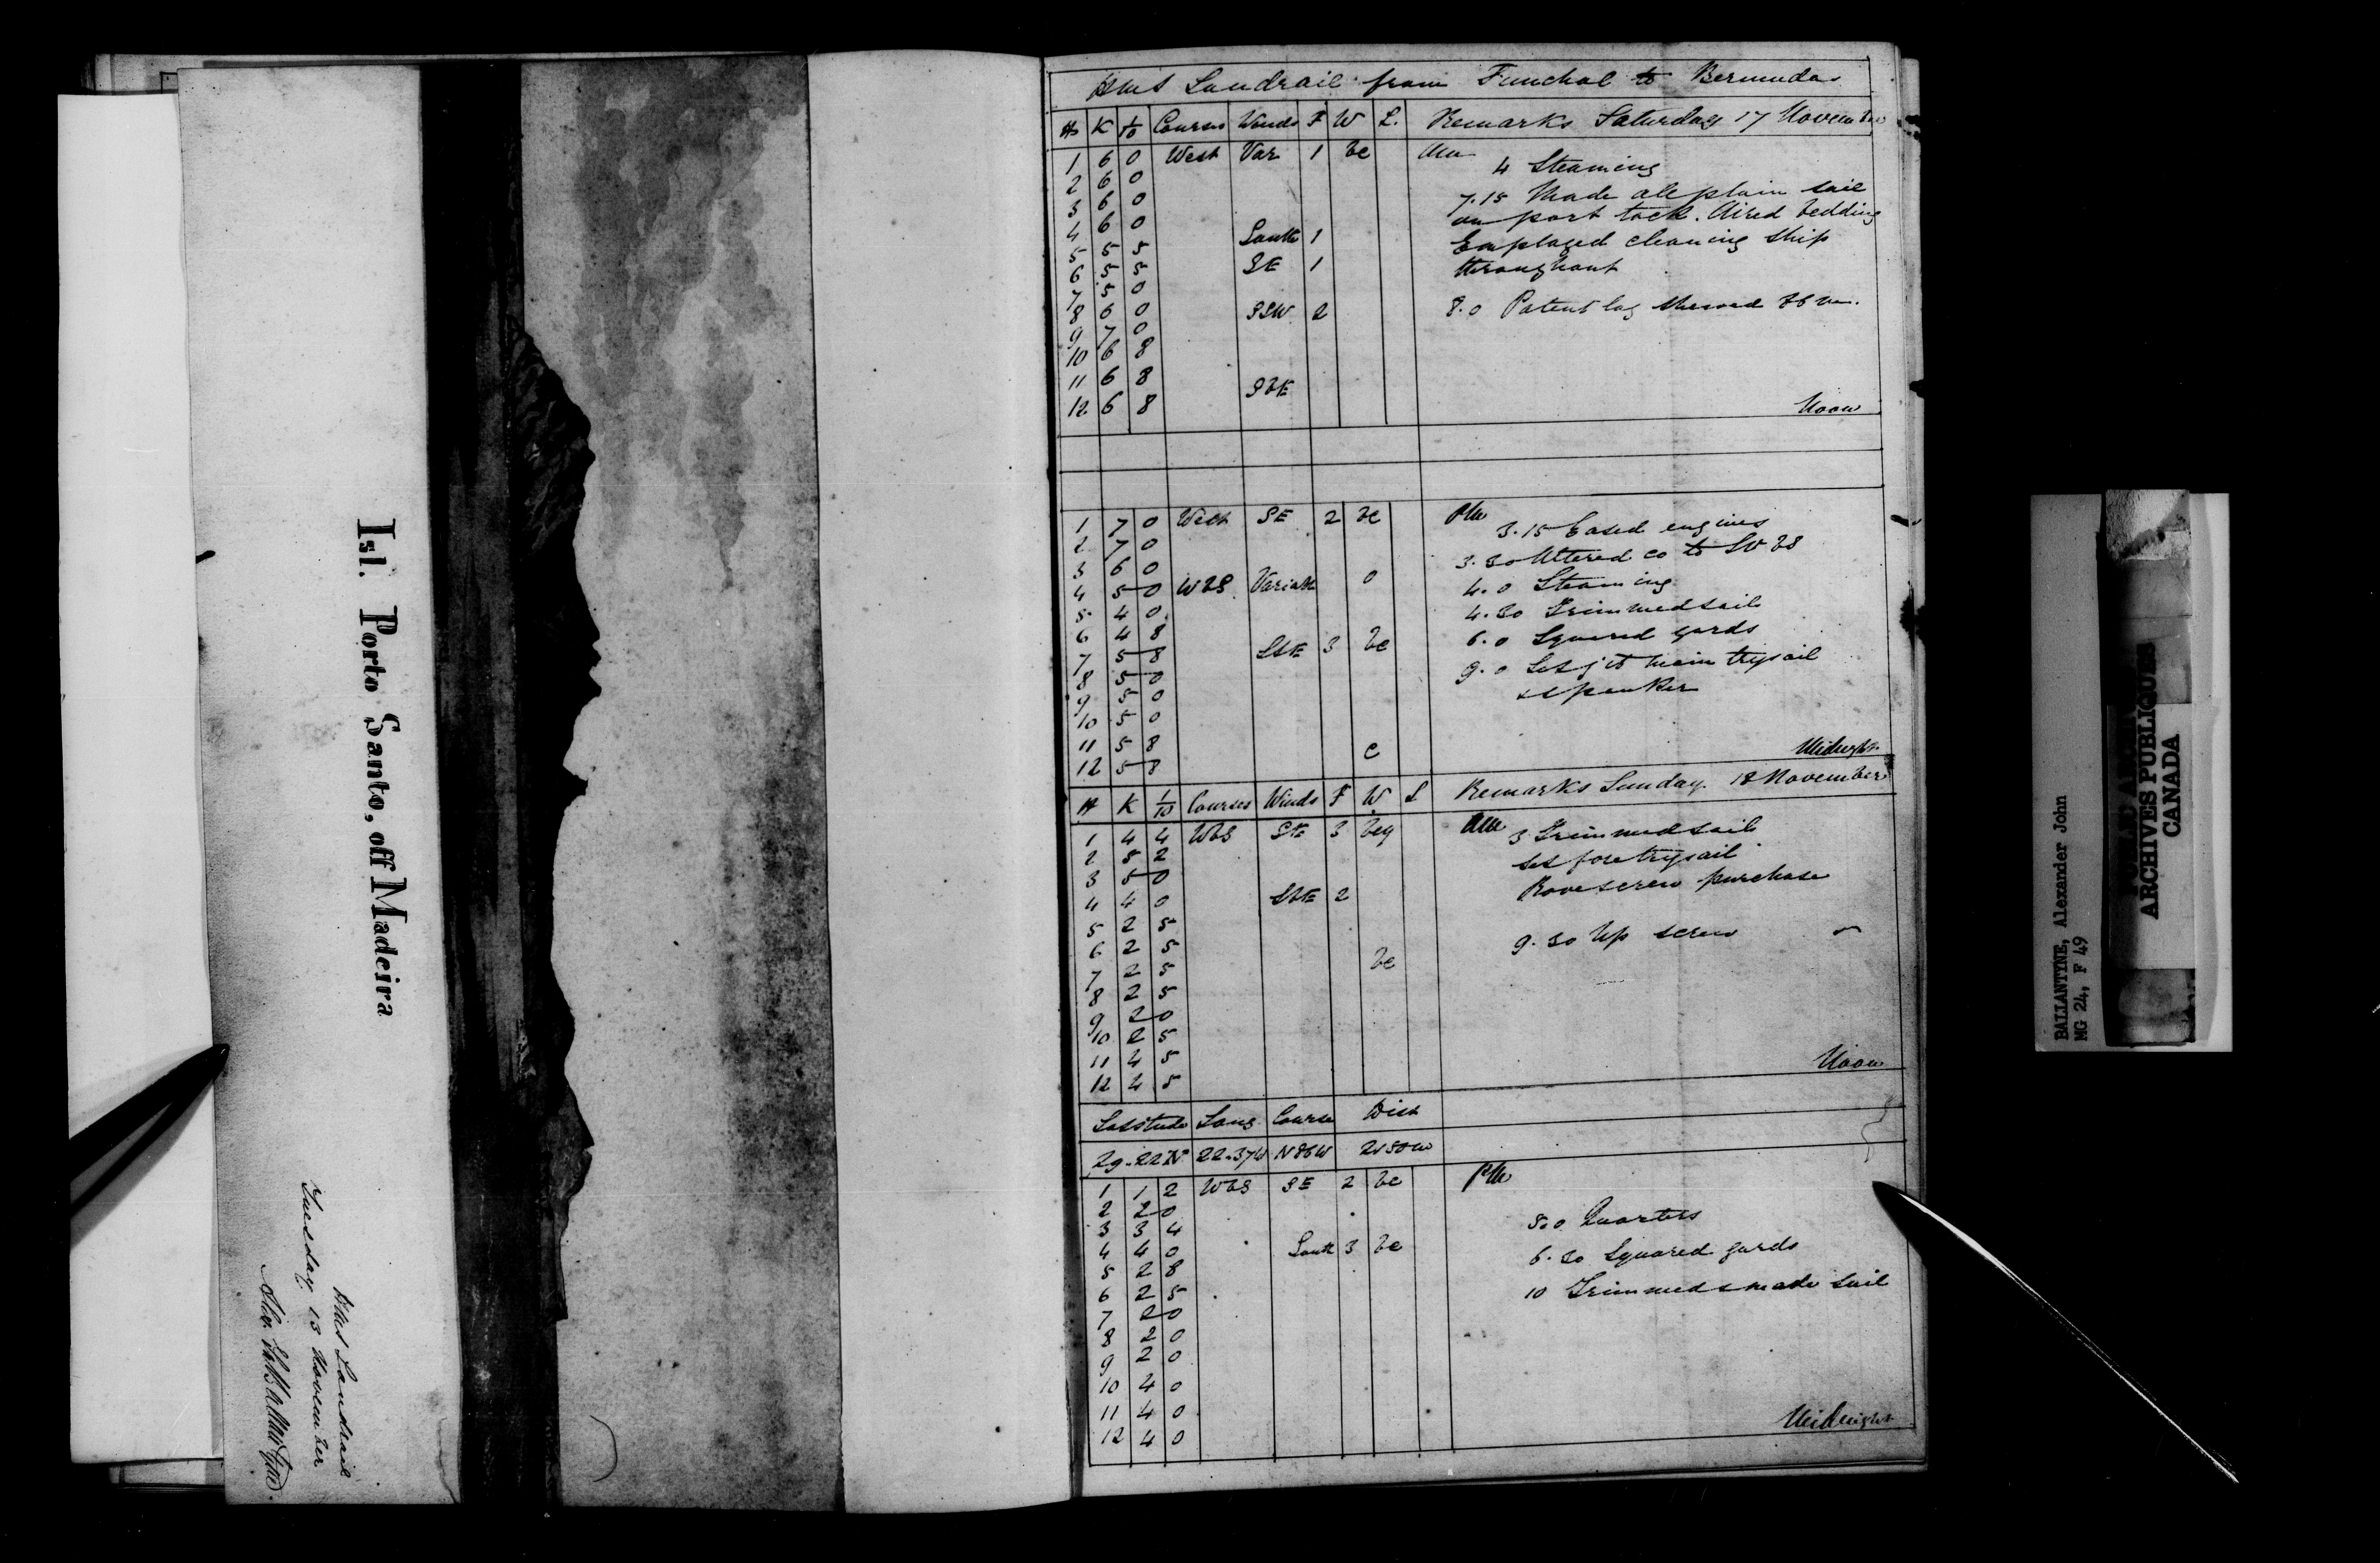 Isl. Porto Santo, off Madeira
HMS Landrail
Tuesday 13 November
HMS Landrail from Funchal to Bermuda
H K 1/10 Courses Winds F W L. Remarks Saturday 17 November
1 6 0 West Var 1 bc AM 4 Steaming
2 6 0
3 6 0 7.15 Made all plain sail
4 6 0 South 1 on port tack. Aired bedding
5 5 5 SE 1 Employed cleaning ship
6 5 5 throughout
7 5 0
8 6 0 SSW 2 8.0 Patent log showed
9 7 0
10 6 8
11 6 8 SbE
12 6 8 Noon
1 7 0 West SE 2 bc PM 3.15 Eased engines
2 7 0 3.30 Altered co to
3 6 0
4 5 0 WbS Variable 0 4.0 Steaming
5 4 0 4.30 Trimmed sails
6 4 8 6.0 Squared yards
7 5 8 SbE 3 bc 9.0 Set jib main trysail
8 5 0 & spanker
9 5 0
10 5 0
11 5 8 c
12 5 8 Midnight
H K 1/10 Courses Winds F W L Remarks Sunday 18 November
1 4 4 WbS SE 3 bcq AM 3 Trimmed sails
2 5 2 Set fore trysail
3 5 0 Rove screw purchase
4 4 0 SbE 2
5 2 5
6 2 5 9.30 Up screw
7 2 5 bc
8 2 5
9 2 0
10 2 5
11 4 5
12 4 5 Noon
Latitude Long Course Dist
29.22N 22.37W N86W
1 1 2 WbS SE 2 bc PM
2 2 0
3 3 4 5.0 Quarters
4 4 0 South 3 bc 6.30 Squared yards
5 2 8
6 2 5 10 Trimmed & made sail
7 2 0
8 2 0
9 2 0
10 4 0
11 4 0
12 4 0 Midnight
BALLANTYNE, Alexander John
MG 24, F 49
ARCHIVES PUBLIQUES
CANADA